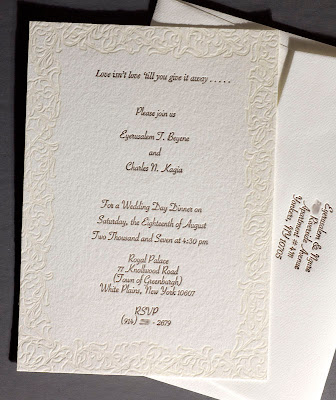 Love isn't love 'till you give it away . . . . .
Please join us
Eyerusalem T. Beyene
and
Charles N. Kagia
For a Wedding Day Dinner on
Saturday, the Eighteenth of August
Two Thousand and Seven at 4:30 pm
Royal Palace
77 Knollwood Road
(Town of Greenburgh)
White Plains, New York 10607
RSVP
(914) - 2679
Eyerusalem &
Riverdale Avenue
Apartment #
Yonkers, NY 10705